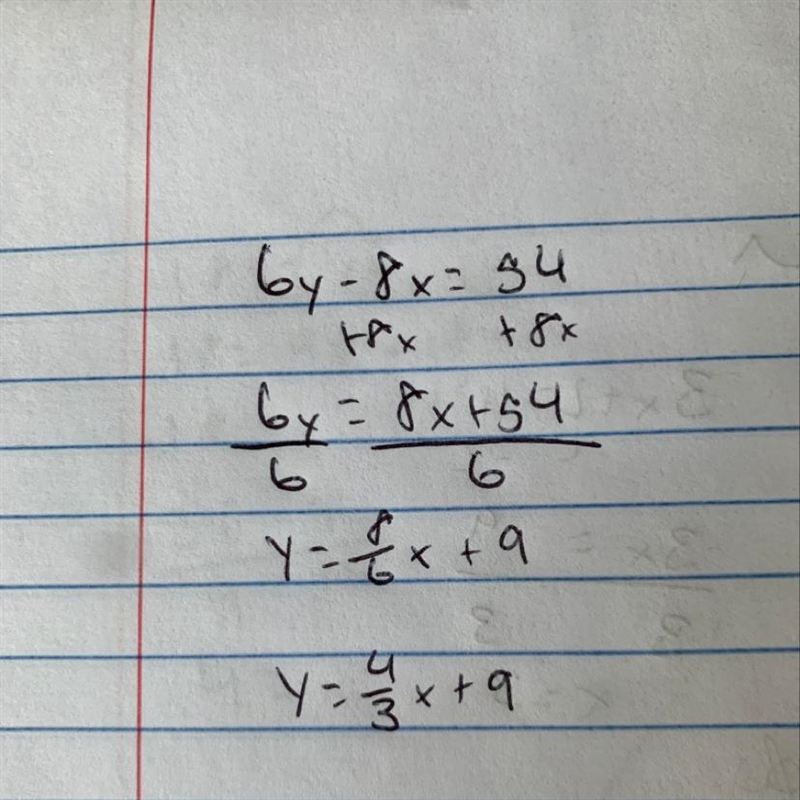 6y - 8x = 54
+8x +8x
6y = 8x+54
6 6
y = 8/6 x + 9
y = 4/3 x + 9